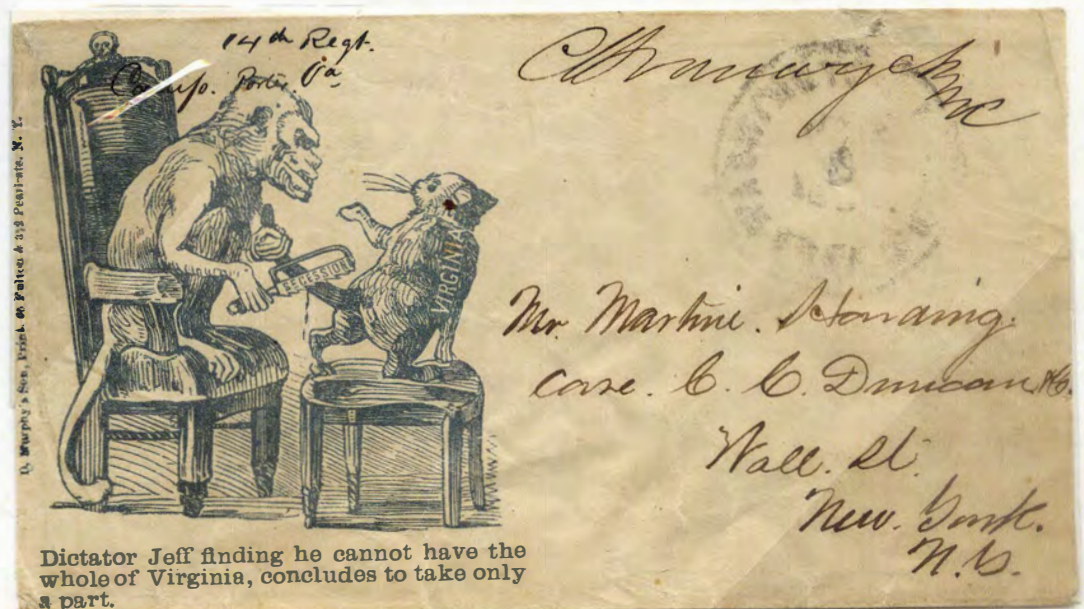 14th Regt.
Camp. Porter. Va
D. Murphy's Son, Print. 65 Fulton & 372 Pearl-sts. N. Y.
SECESSION
VIRGINIA
Mr Martin. Harding.
care. C. C. Duncan & Co.
Wall. St.
New. York.
N.Y.
Dictator Jeff finding he cannot have the
whole of Virginia, concludes to take only
a part.